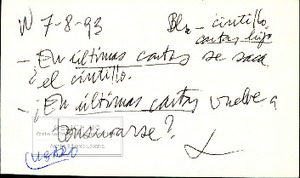 IV 7-8-93 Bln – cintillo
cartas hijo
– En últimas cartas se saca
¿el cintillo.
– ¿En últimas cartas vuelve a
censurarse?
CUADRO